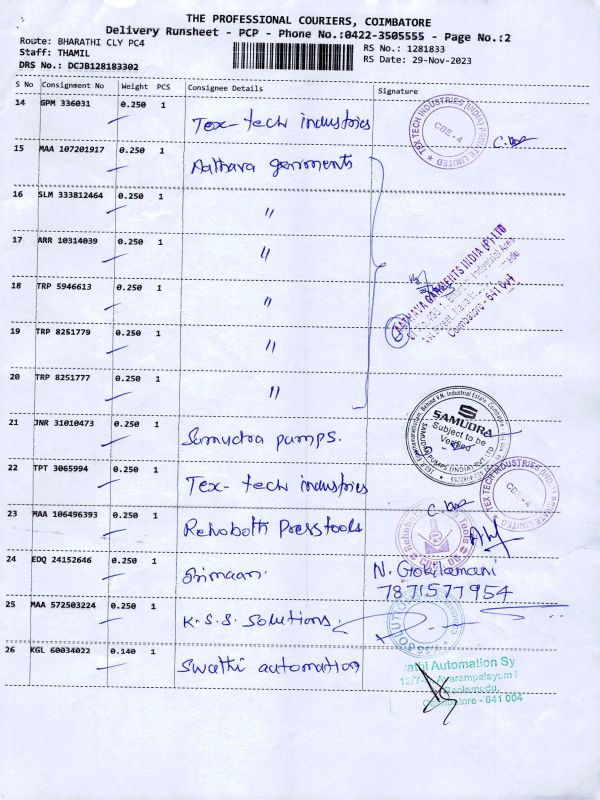 THE PROFESSIONAL COURIERS, COIMBATORE
Delivery Runsheet - PCP - Phone No.:0422-3505555 - Page No.:2
Route: BHARATHI CLY PC4
RS No.: 1281833
Staff: THAMIL
RS Date: 29-Nov-2023
DRS No.: DCJB128183302
S No Consignment No Weight PCS Consignee Details Signature
14 GPM 336031 0.250 1 Tex-tech industries
TEX TECH INDUSTRIES (INDIA) PRIVATE LIMITED
CBE-4
15 MAA 107201917 0.250 1 Aathava garments
16 SLM 333812464 0.250 1 "
17 ARR 10314039 0.250 1 "
AATHAVA GARMENTS INDIA (P) LTD
Coimbatore - 641 004
18 TRP 5946613 0.250 1 "
19 TRP 8251779 0.250 1 "
20 TRP 8251777 0.250 1 "
21 JNR 31010473 0.250 1 Samudra pumps.
SAMUDRA
Subject to be
Verified
SAMUDRA PUMPS (INDIA) PVT. LTD.
22 TPT 3065994 0.250 1 Tex-tech industries
TEX TECH INDUSTRIES
CBE-4
23 MAA 106496393 0.250 1 Rehoboth Presstools
24 EDQ 24152646 0.250 1 Srimaan.
N. Gokilamani
7871577954
25 MAA 572503224 0.250 1 K.S.S. Solutions.
26 KGL 60034022 0.140 1 Swathi automation
athi Automation Sy
Avarampalayam
Coimbatore - 641 004